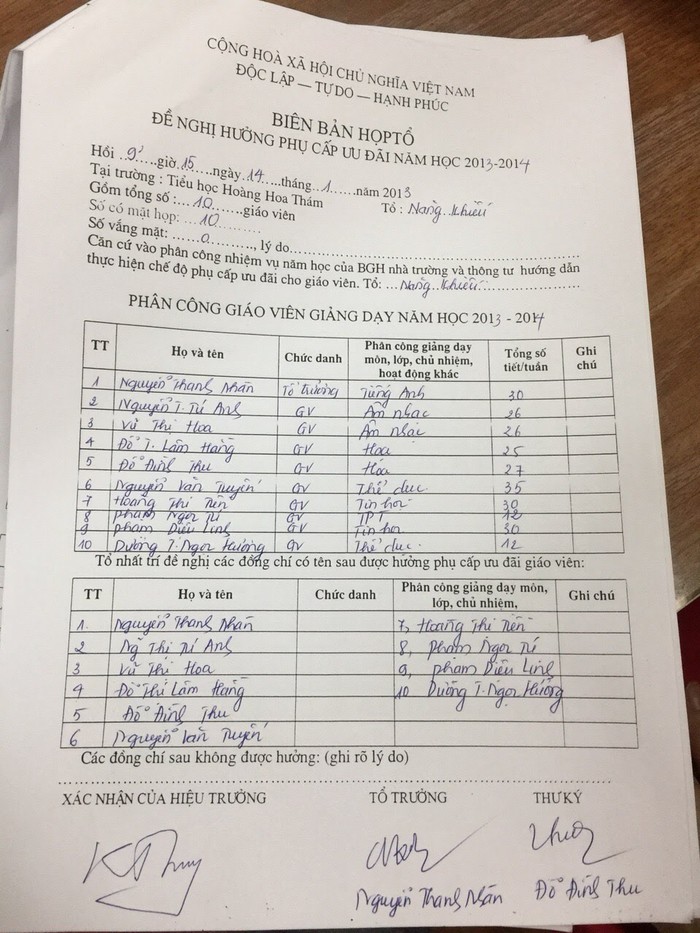 CỘNG HOÀ XÃ HỘI CHỦ NGHĨA VIỆT NAM
ĐỘC LẬP — TỰ DO — HẠNH PHÚC
BIÊN BẢN HỌP TỔ
ĐỀ NGHỊ HƯỞNG PHỤ CẤP ƯU ĐÃI NĂM HỌC 2013-2014
Hồi ..9......giờ.15.....ngày.14.....tháng...1......năm 2013
Tại trường : Tiểu học Hoàng Hoa Thám Tổ : Năng khiếu
Gồm tổng số :....10........giáo viên
Số có mặt họp: ....10..........
Số vắng mặt: .......0........, lý do........................
Căn cứ vào phân công nhiệm vụ năm học của BGH nhà trường và thông tư hướng dẫn
thực hiện chế độ phụ cấp ưu đãi cho giáo viên. Tổ: ...Năng khiếu....................
PHÂN CÔNG GIÁO VIÊN GIẢNG DẠY NĂM HỌC 2013 - 2014
TT Họ và tên Chức danh Phân công giảng dạy môn, lớp, chủ nhiệm, hoạt động khác Tổng số tiết/tuần Ghi chú
1 Nguyễn Thanh Nhàn Tổ trưởng Tiếng Anh 30
2 Nguyễn T. Tú Anh GV Âm nhạc 26
3 Vũ Thị Hoa GV Âm nhạc 26
4 Đỗ T. Lâm Hằng GV Họa 25
5 Đỗ Đình Thu GV Họa 27
6 Nguyễn Văn Tuyến GV Thể dục 35
7 Hoàng Thị Tiến GV Tin học 30
8 Phạm Ngọc Tú GV TPT 12
9 Phạm Diệu Linh GV Tin học 30
10 Dương T. Ngọc Hương GV Thể dục 12
Tổ nhất trí đề nghị các đồng chí có tên sau được hưởng phụ cấp ưu đãi giáo viên:
TT Họ và tên Chức danh Phân công giảng dạy môn, lớp, chủ nhiệm, Ghi chú
1. Nguyễn Thanh Nhàn 7, Hoàng Thị Tiến
2 Ng Thị Tú Anh 8, Phạm Ngọc Tú
3 Vũ Thị Hoa 9, Phạm Diệu Linh
4 Đỗ Thị Lâm Hằng 10 Dương T. Ngọc Hương
5 Đỗ Đình Thu
6 Nguyễn Văn Tuyến
Các đồng chí sau không được hưởng: (ghi rõ lý do)
XÁC NHẬN CỦA HIỆU TRƯỞNG TỔ TRƯỞNG THƯ KÝ
Nguyễn Thanh Nhàn Đỗ Đình Thu